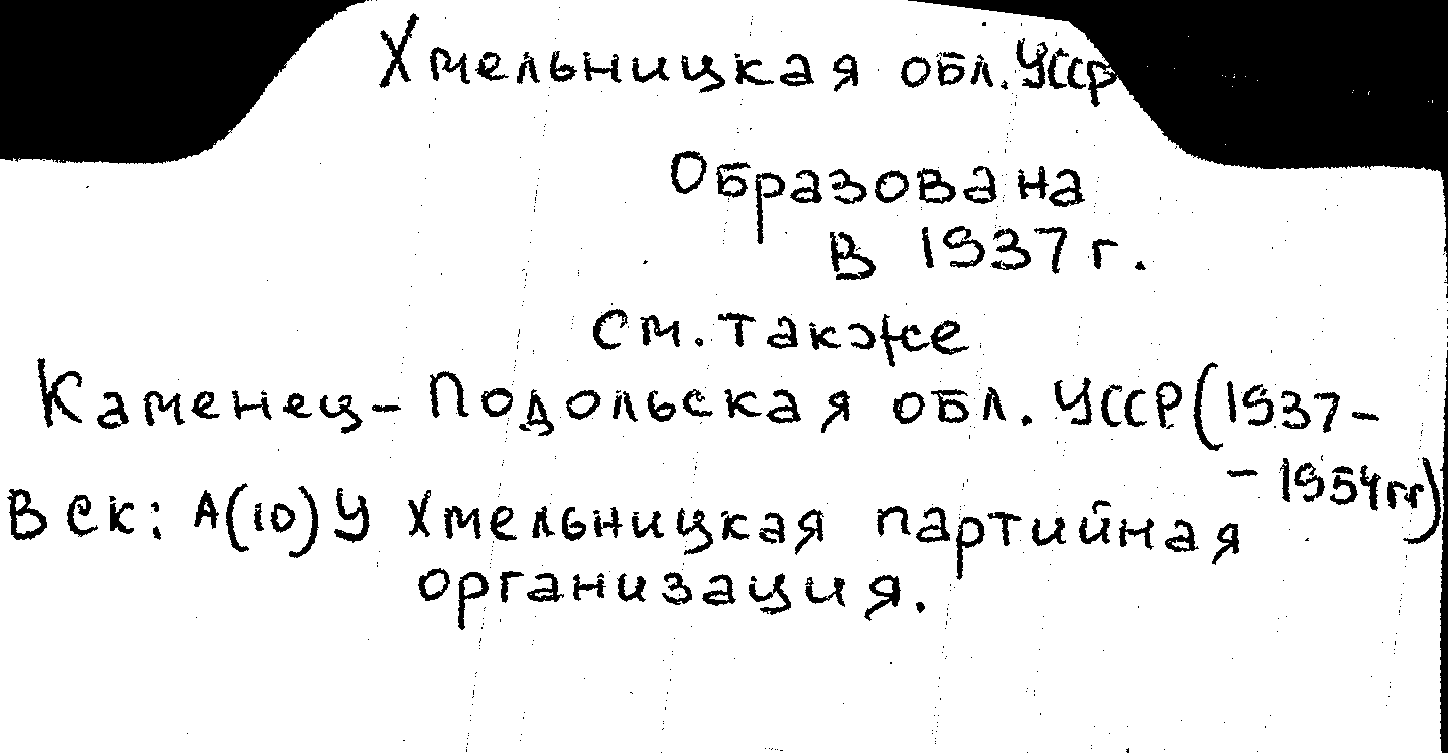 Хмельницкая обл. УССР
Образована
в 1937 г.
см. также
Каменец-Подольская обл. УССР (1937-
- 1954 гг)
В СК: А(10)У Хмельницкая партийная
организация.